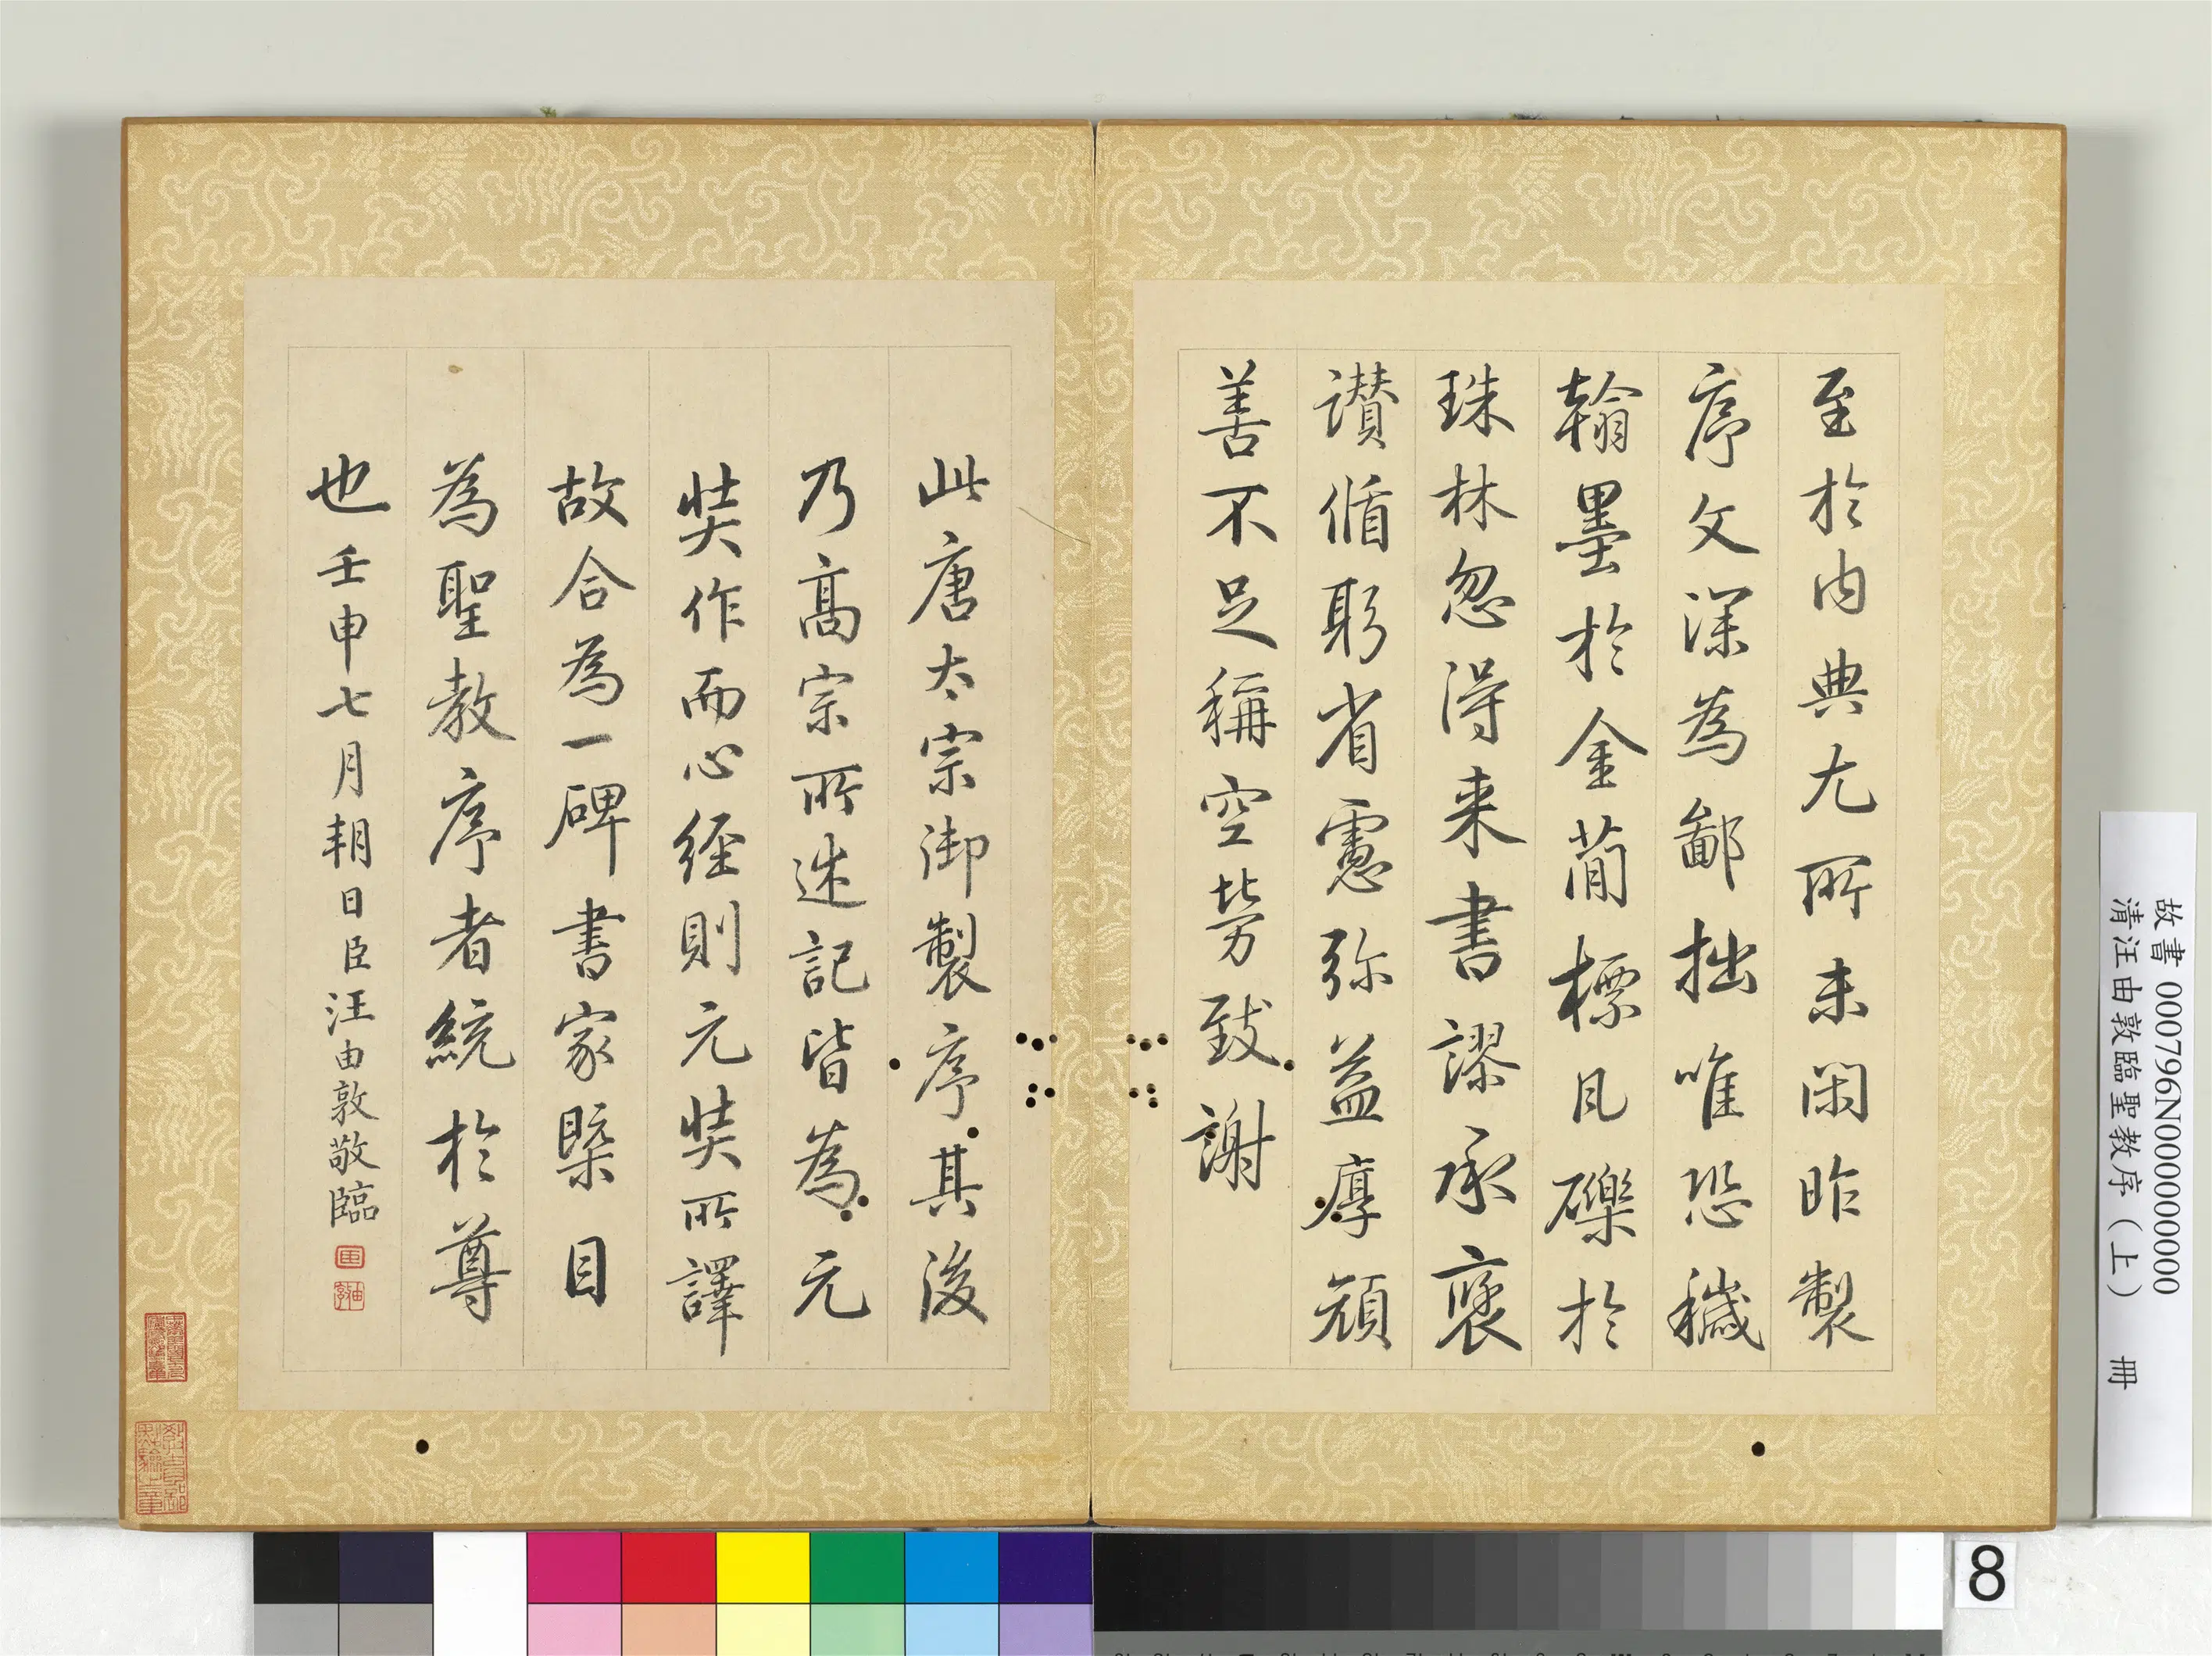 至於内典尤所未閑昨製
序文深為鄙拙唯恐穢
翰墨於金蕳標凡礫於
珠林忽得来書謬承襃
讃循躬省慮弥益厚顔
善不足稱空勞致謝
此唐太宗御製序其後
乃髙宗所述記皆為元
奘作而心経則元奘所譯
故合為一碑書家槩目
為聖教序者統於尊
也壬申七月朔日臣汪由敦敬臨
故書 000796N000000000
清汪由敦臨聖教序（上） 冊
8